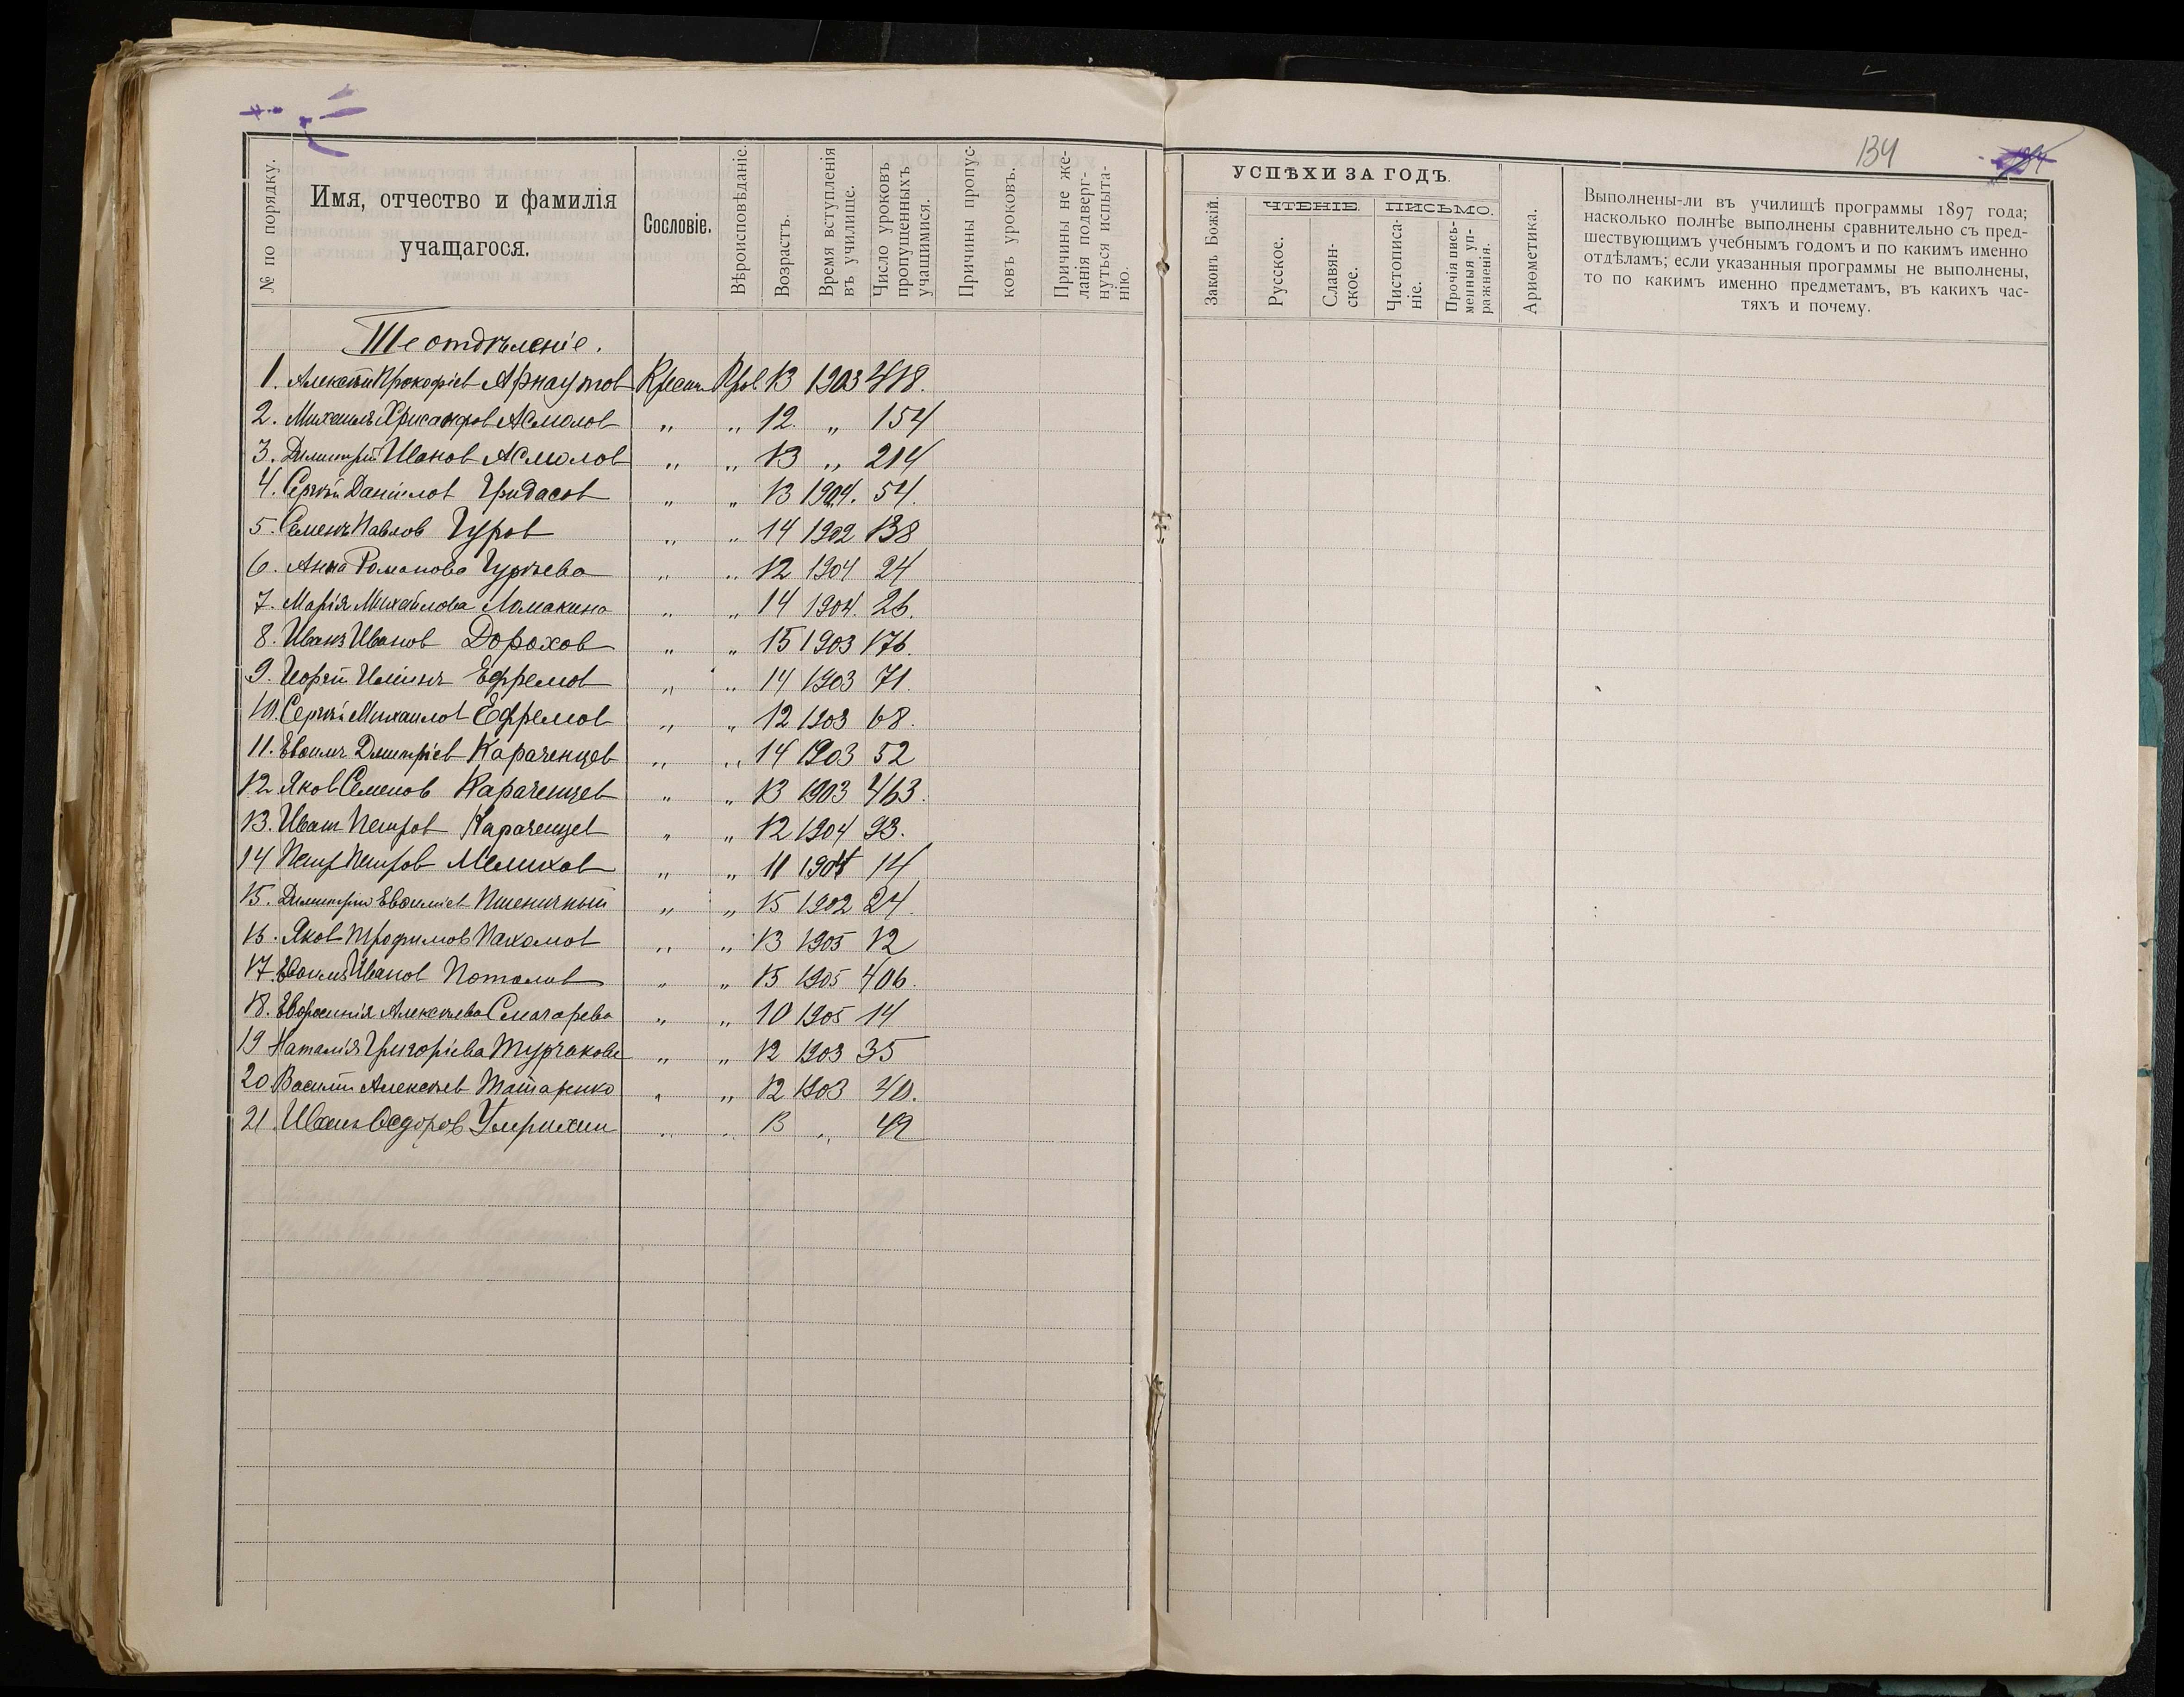 134
№ по порядку.
Имя, отчество и фамилія учащагося.
Сословіе.
Вѣроисповѣданіе.
Возрастъ.
Время вступленія въ училище.
Число уроковъ пропущенныхъ учащимися.
Причины пропусковъ уроковъ.
Причины не желанія подвергнуться испытанію.
УСПѢХИ ЗА ГОДЪ.
Законъ Божій.
ЧТЕНІЕ.
Русское.
Славянское.
ПИСЬМО.
Чистописаніе.
Прочія письменныя упражненія.
Ариѳметика.
Выполнены-ли въ училищѣ программы 1897 года;
насколько полнѣе выполнены сравнительно съ пред-
шествующимъ учебнымъ годомъ и по какимъ именно
отдѣламъ; если указанныя программы не выполнены,
то по какимъ именно предметамъ, въ какихъ час-
тяхъ и почему.
III е отдѣленіе.
1. Алексѣй Прокофіев Арнаутов Крестьян Прав. 13 1903 418.
2. Михаилъ Хрисанфов Асмолов " " 12. " 154
3. Димитрій Иванов Асмолов " " 13 " 214
4. Сергѣй Даніилов Гридасов " " 13 1904. 54.
5. Семенъ Павлов Гуров " " 14 1902 138
6. Анна Романова Гурѣева " " 12 1904 24
7. Марія Михайлова Ломакина " " 14 1904. 26.
8. Иванъ Иванов Дорохов " " 15 1903 176.
9. Георгій Ильинъ Ефремов " " 14 1903 71.
10. Сергѣй Михаилов Ефремов " " 12 1903 68.
11. Евфимъ Дмитріев Караченцев " " 14 1903 52
12. Яков Семенов Караченцев " " 13 1903 463.
13. Иван Петров Караченцев " " 12 1904 93.
14 Петр Петров Мелихов " " 11 1904 14
15. Димитрій Евфиміев Пшеничный " " 15 1902 24.
16. Яков Трофимов Пахомов " " 13 1905 12
17. Иванов Потолов " " 15 1905 406.
18. Алексѣева Смагарева " " 10 1905 14
19 Наталія Григоріева Турчакова " " 12 1903 35
20 Василій Алексѣев Татаренко " " 12 1903 40.
21. Иван Ѳедоров Умрихин " " 13 " 49